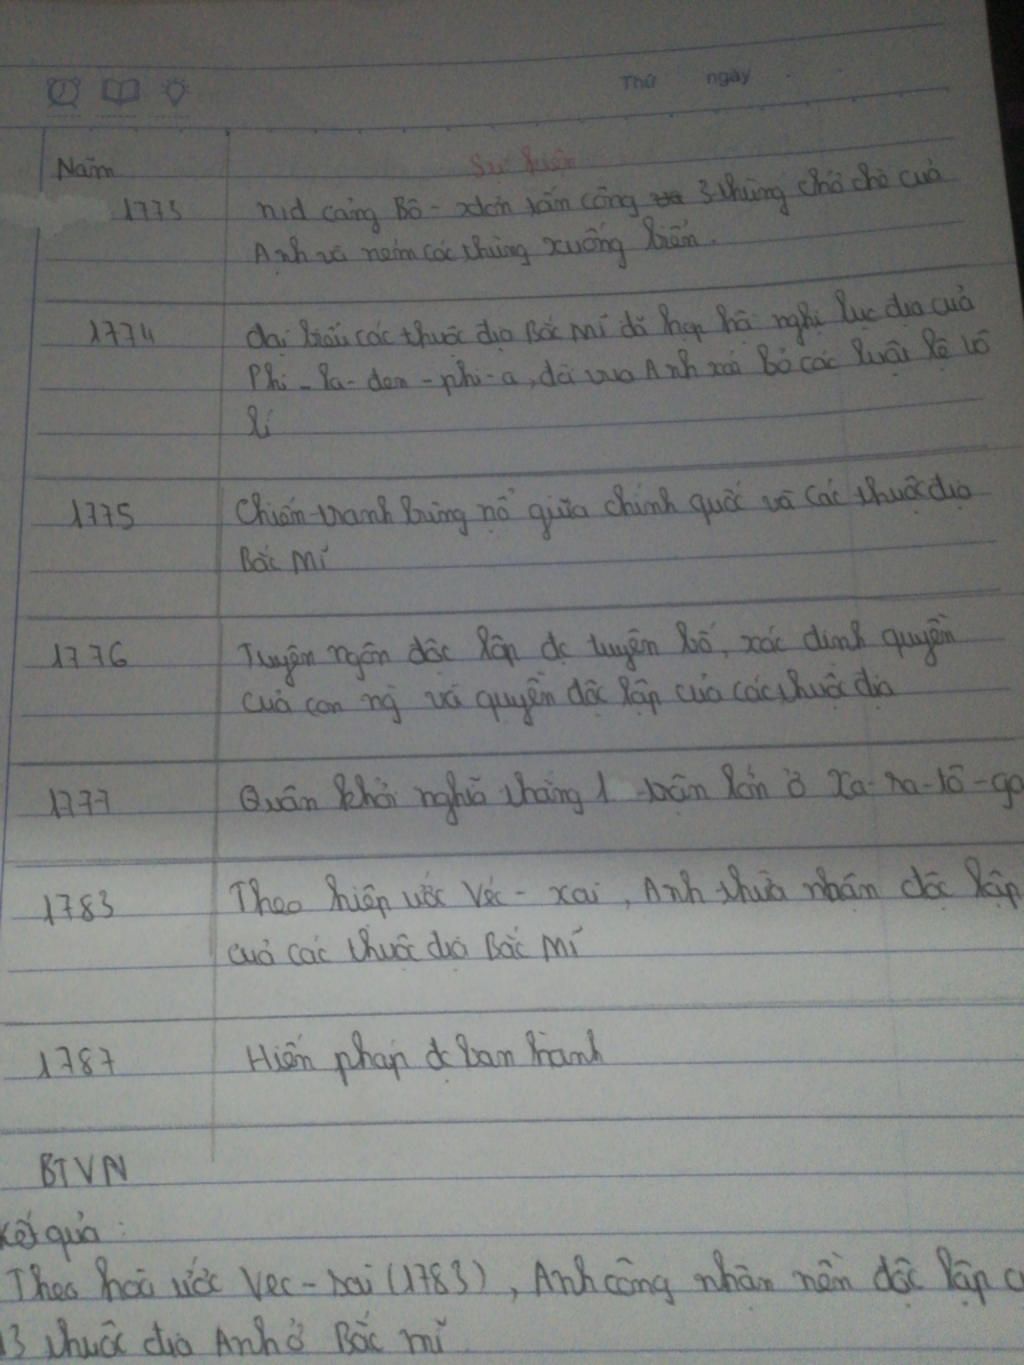 Thứ ngày
Năm Sự kiện
1773 nd cảng Bô-xtơn tấn công 3 thùng chở chè của
Anh và ném các thùng xuống biển.
1774 đại biểu các thuộc địa Bắc Mĩ đã họp hội nghị lục địa của
Phi-la-den-phi-a, đòi vua Anh xóa bỏ các luật lệ vô
lí
1775 Chiến tranh bùng nổ giữa chính quốc và các thuộc địa
Bắc Mĩ
1776 Tuyên ngôn độc lập đc tuyên bố, xác định quyền
của con ng và quyền độc lập của các thuộc địa
1777 Quân khởi nghĩa thắng 1 trận lớn ở Xa-ra-tô-ga
1783 Theo hiệp ước Véc-xai, Anh thừa nhận độc lập
của các thuộc địa Bắc Mĩ
1787 Hiến pháp đc ban hành
BTVN
Kết quả:
Theo hoà ước Vec-xai (1783), Anh công nhận nền độc lập c
13 thuộc địa Anh ở Bắc mĩ